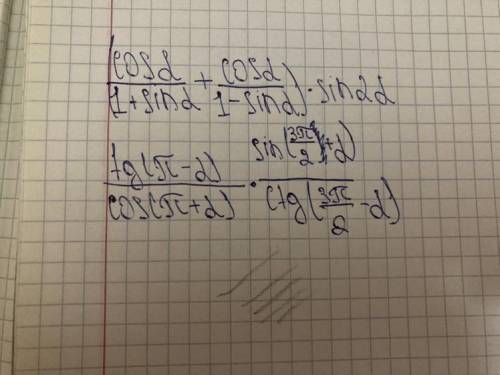 (cosα/(1+sinα) + cosα/(1-sinα)) · sin2α
tg(π-α)/cos(π+α) · sin(3π/2+α)/ctg(3π/2-α)